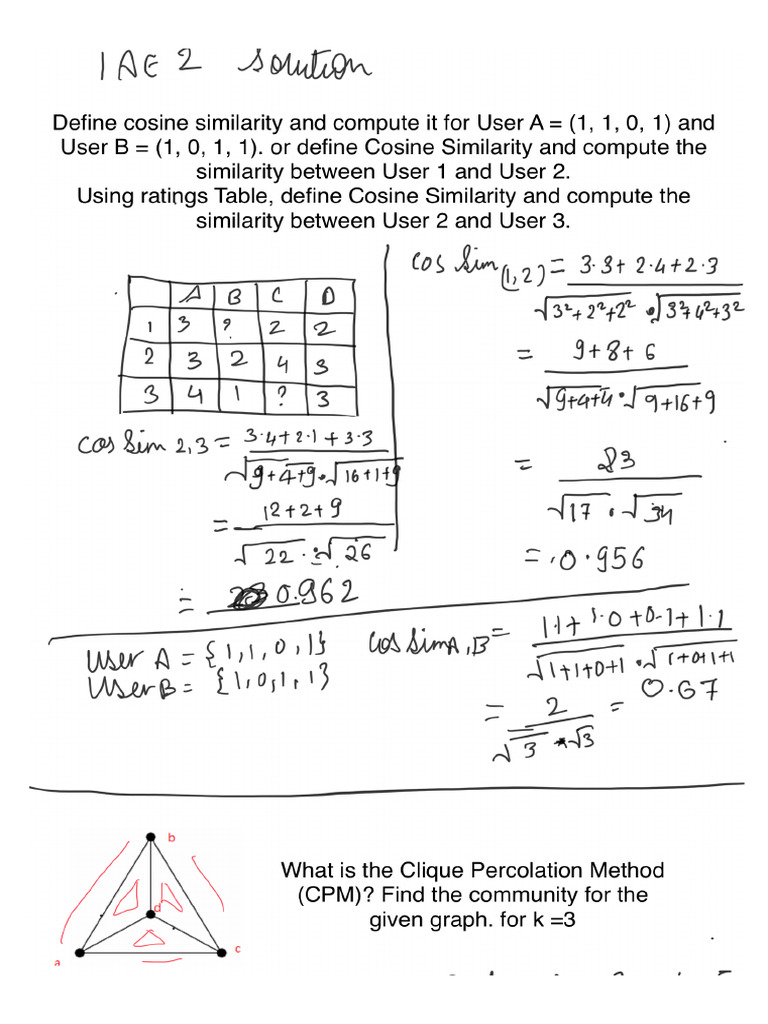 IAE 2 solution
Define cosine similarity and compute it for User A = (1, 1, 0, 1) and
User B = (1, 0, 1, 1). or define Cosine Similarity and compute the
similarity between User 1 and User 2.
Using ratings Table, define Cosine Similarity and compute the
similarity between User 2 and User 3.
A B C D
1 3 ? 2 2
2 3 2 4 3
3 4 1 ? 3
cos Sim 2,3 = 3·4+2·1+3·3
√9+4+9·√16+1+9
= 12+2+9
√22·√26
= 0.962
cos Sim (1,2) = 3·3+2·4+2·3
√3²+2²+2²·√3²+4²+3²
= 9+8+6
√9+4+4·√9+16+9
= 23
√17·√34
= 0.956
User A = {1,1,0,1}
User B = {1,0,1,1}
cos Sim A,B = 1·1+1·0+0·1+1·1
√1+1+0+1·√1+0+1+1
= 2
√3*√3
= 0.67
b
d
a
c
What is the Clique Percolation Method
(CPM)? Find the community for the
given graph. for k =3